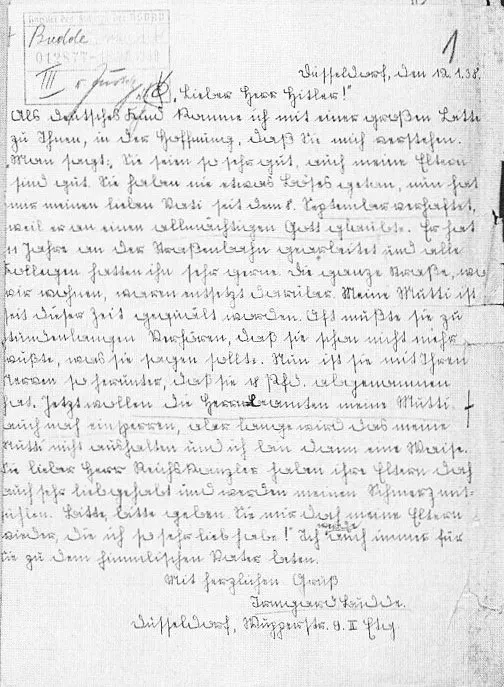 Budde
III
1
Düsseldorf, den 12.1.38.
"Lieber Herr Hitler!"
Als deutsches Kind komme ich mit einer großen Bitte
zu Ihnen, in der Hoffnung, daß Sie mich verstehen.
Man sagt, Sie seien so sehr gut, auch meine Eltern
sind gut. Sie haben nie etwas Böses getan, nun hat
man meinen lieben Vati seit dem 8. September verhaftet,
weil er an einen allmächtigen Gott glaubte. Er hat
11 Jahre an der Straßenbahn gearbeitet und alle
Kollegen hatten ihn sehr gerne. Die ganze Straße, wo
wir wohnen, waren entsetzt darüber. Meine Mutti ist
seit dieser Zeit gequält worden. Oft mußte sie zu
stundenlangen Verhören, daß sie schon nicht mehr
wußte, was sie sagen sollte. Nun ist sie mit Ihren
Nerven so herunter, daß sie 18 Pfd. abgenommen
hat. Jetzt wollen die Herrn Beamten meine Mutti
auch noch einsperren, aber lange wird das meine
Mutti nicht aushalten und ich bin dann eine Waise.
Sie lieber Herr Reichskanzler haben ihre Eltern doch
auch sehr liebgehabt und werden meinen Schmerz mit-
fühlen. Bitte, bitte geben Sie mir doch meine Eltern
wieder, die ich so sehr lieb habe!" Ich werde auch immer für
Sie zu dem himmlischen Vater beten.
Mit herzlichen Gruß
Irmgard Budde.
Düsseldorf, Wupperstr. 9. II Etg.